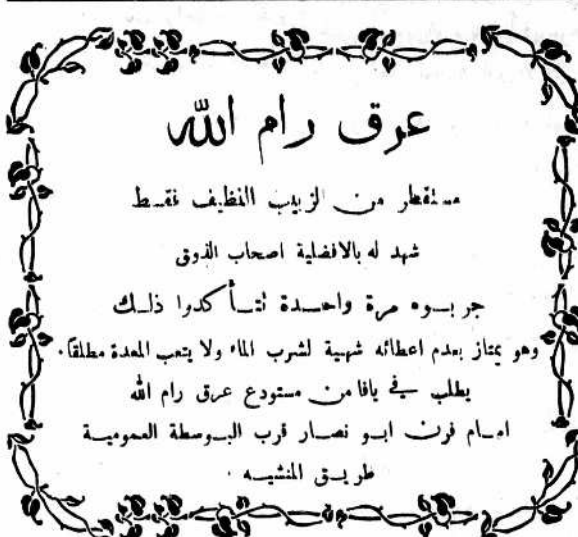 عرق رام الله
مستقطر من الزبيب النظيف فقط
شهد له بالافضلية اصحاب الذوق
جربوه مرة واحدة تتأكدوا ذلك
وهو يمتاز بعدم اعطائه شهية لشرب الماء ولا يتعب المعدة مطلقاً .
يطلب في يافا من مستودع عرق رام الله
امام فرن ابو نصار قرب البوسطة العمومية
طريق المنشيه .